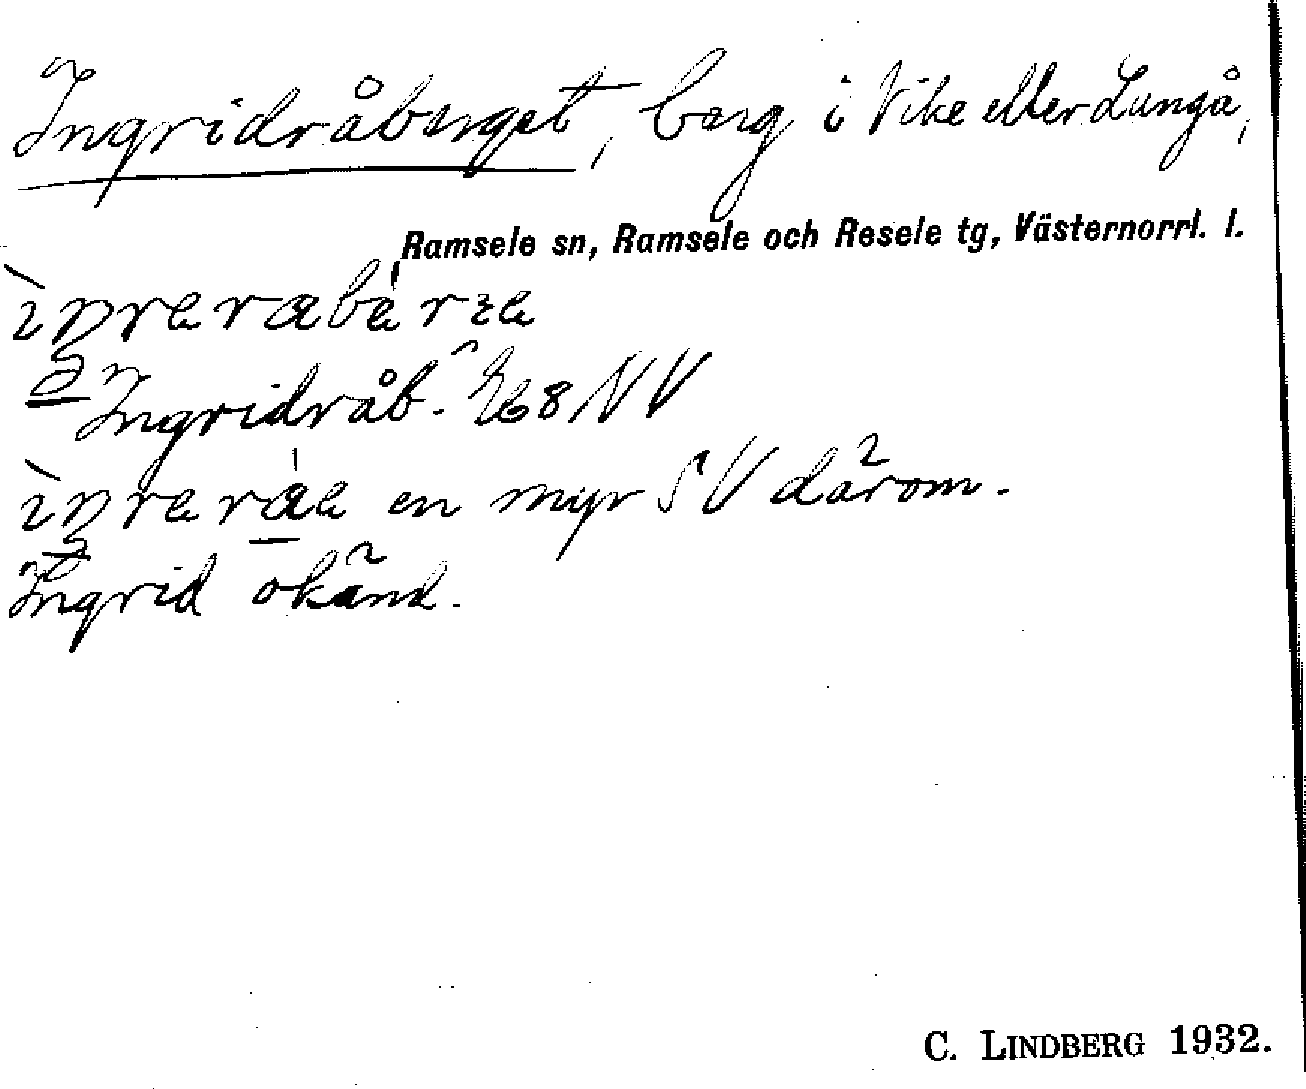 Ingridråberget, berg i Vike eller Lungå,
Ramsele sn, Ramsele och Resele tg, Västernorrl. l.
Ingridråb. 68 NV
en myr SV därom.
Ingrid okänd.
C. LINDBERG 1932.